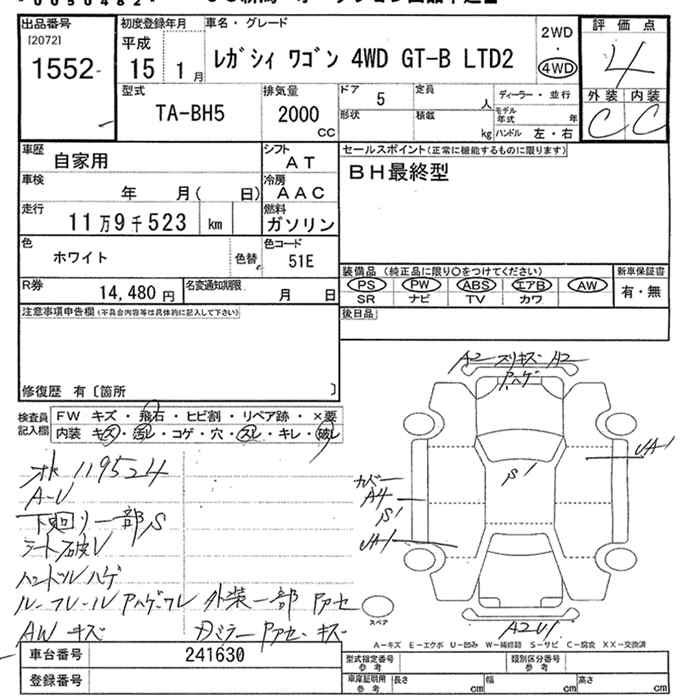 出品番号
[2072]
1552
初度登録年月
平成
15 1月
車名・グレード
レガシィ ワゴン 4WD GT-B LTD2
2WD
4WD
評価点
4
外装 内装
C C
型式
TA-BH5
排気量
2000
CC
ドア 5
定員
人
ディーラー・並行
形状
積載
kg
モデル年式
年
ハンドル 左・右
車歴
自家用
シフト
AT
セールスポイント(正常に機能するものに限ります)
BH最終型
車検
年 月( 日)
冷房
AAC
走行
11万9千523 km
燃料
ガソリン
色
ホワイト
色替
色コード
51E
装備品 (純正品に限り○をつけてください)
新車保証書
PS PW ABS エアB AW
有・無
SR ナビ TV カワ
R券
14,480円
名変通知期限
月 日
後日品
注意事項申告欄(不具合内容等は具体的に記入して下さい)
修復歴 有〔箇所 〕
検査員
記入欄
FW キズ・飛石・ヒビ割・リペア跡・×要
内装 キズ・汚レ・コゲ・穴・スレ・キレ・破レ
119524
A-U
下廻り一部S
シート破レ
ハンドルハゲ
外装一部
AW キズ
A2 スリキズ A2
S1
カバー
A4
S1
A2U1
スペア
A-キズ E-エクボ U-凹み W-補修跡 S-サビ C-腐食 XX-交換済
車台番号
241630
登録番号
型式指定番号
参考
類別区分番号
参考
車庫証明用
参考
長さ
cm
幅
cm
高さ
cm